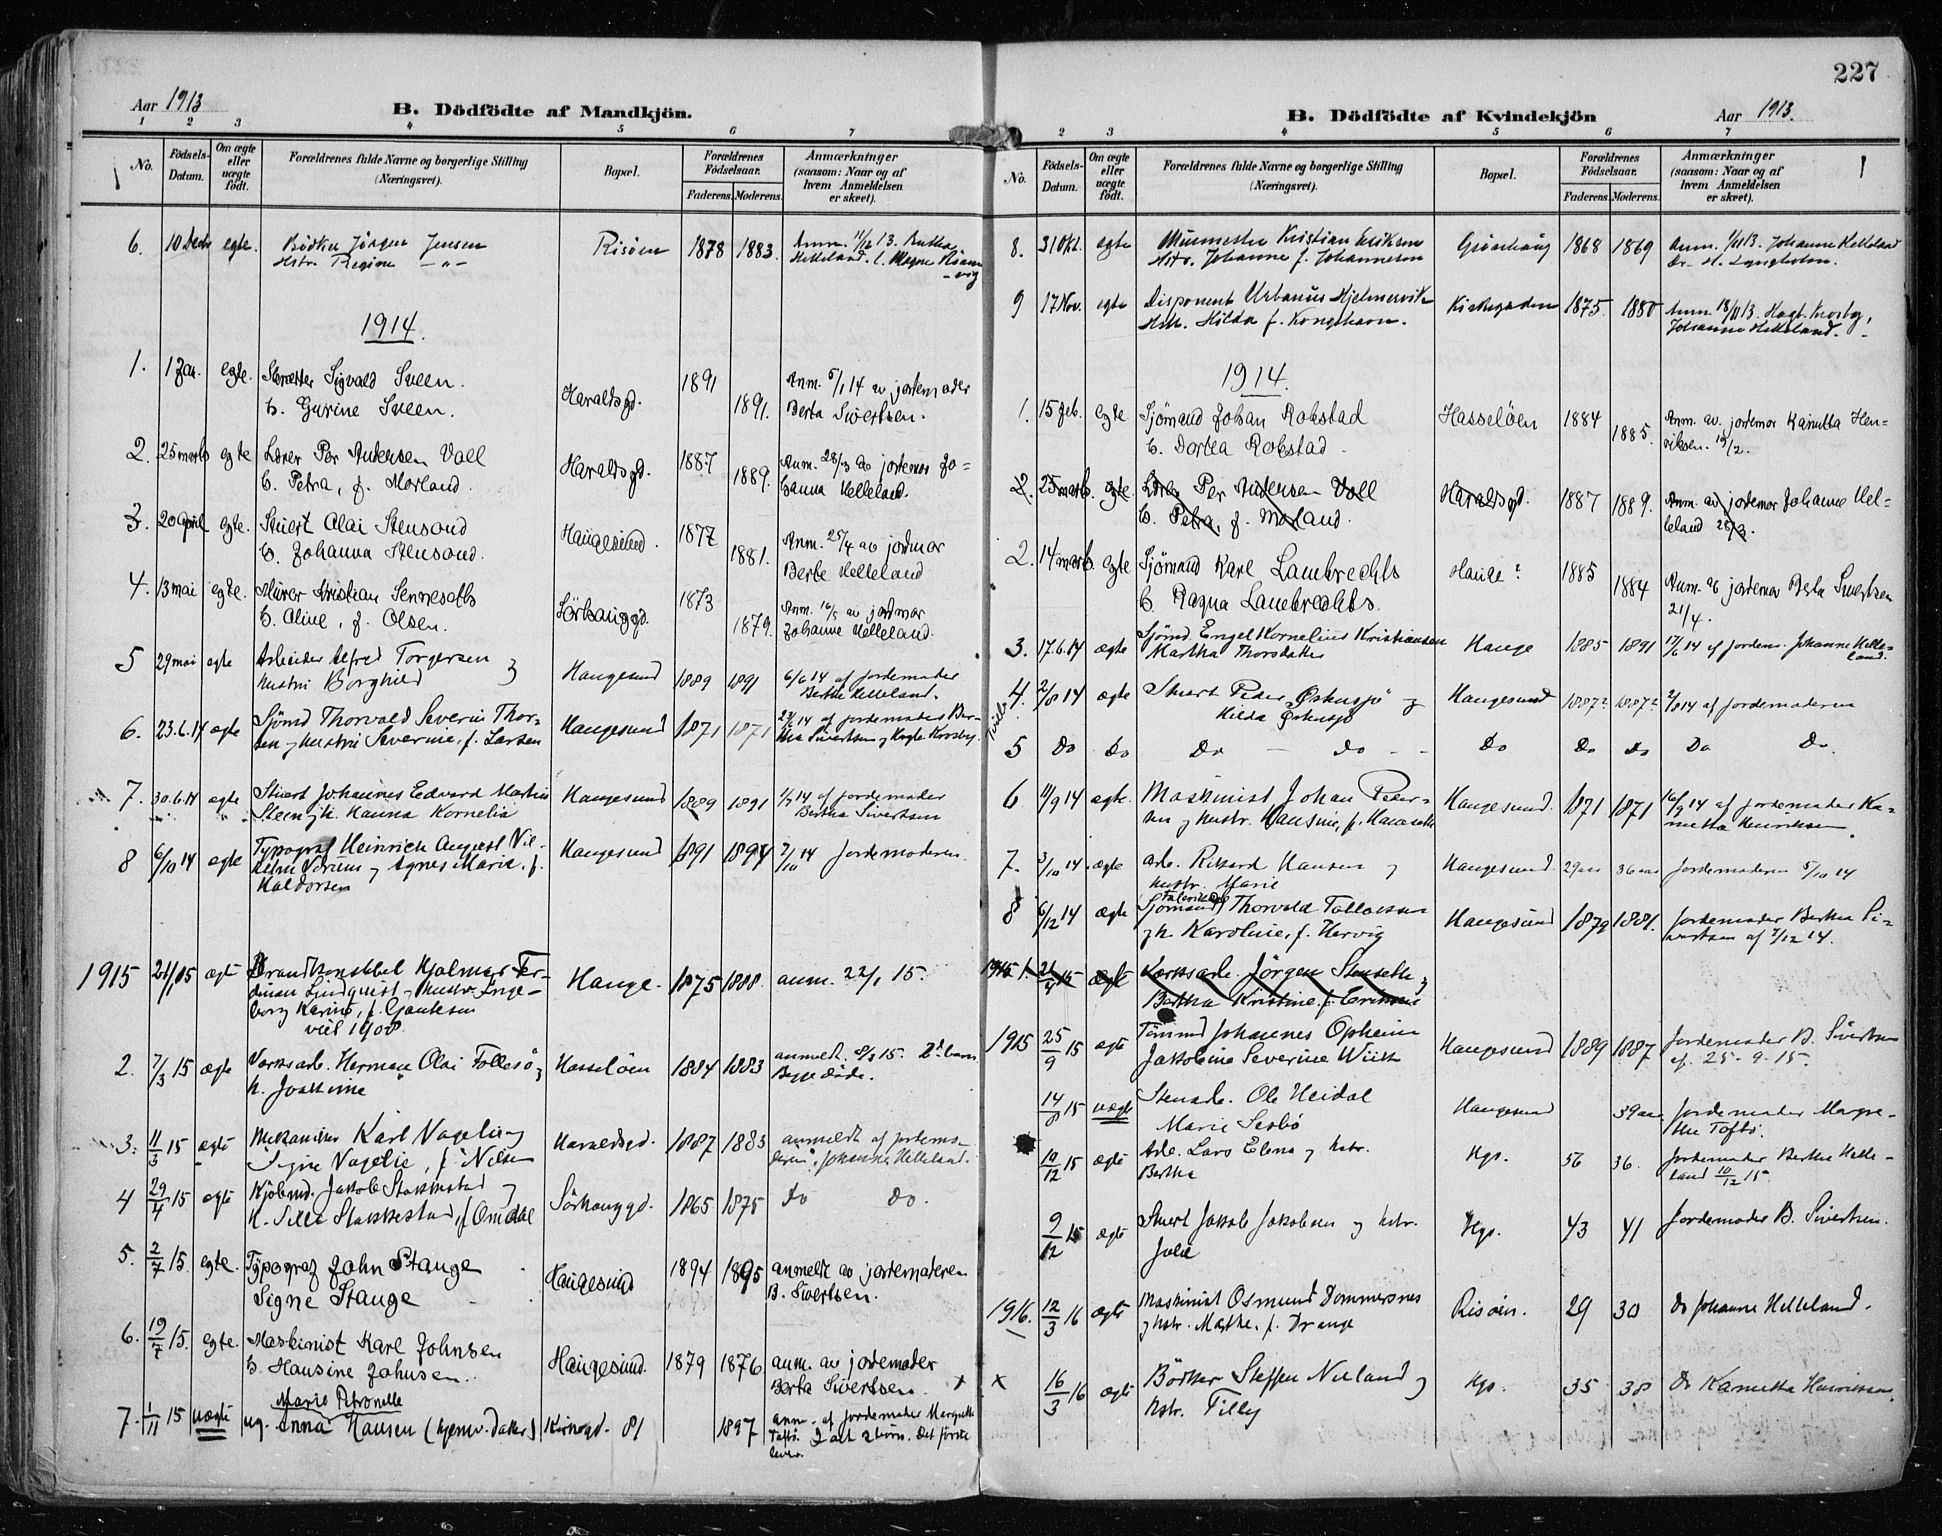 227
Aar 1913
B. Dödfödte af Mandkjön.
1 2 3 4 5 6 7
No.
Födsels-Datum.
Om ægte eller uægte födt.
Forældrenes fulde Navne og borgerlige Stilling
(Næringsvei).
Bopæl.
Forældrenes Födselsaar.
Faderens. Moderens.
Anmærkninger
(saasom: Naar og af
hvem Anmeldelsen
er skeet).
6. 10 Decbr egte. Bödker Jörgen Jensen Risöen 1878 1883. Anm. 11/12 13.
Hstr. Regine — " — Helleland.
1914.
1. 1 Jan. egte. Sigvald Sveen. Haraldsgd. 1891 1891. Anm. 5/1 14 av jordemoder
h. Gurine Sveen. Berta Sivertsen.
2. 25 marts egte Lærer Per Andersen Vall Haraldsgd. 1887 1889. Anm. 28/3 av jordemor Jo-
h. Petra, f. Morland. hanna Helleland.
3. 20 april egte. Stuert Olai Stensond Haugesund. 1877 1881. Anm. 25/4 av jordmor
h. Johanna Stensond. Berte Helleland
4. 13 mai egte. Murer Kristian Sennesæth Sörhauggd. 1873 1879. Anm. 16/5 av jordmor
h. Oline, f. Olsen. Johanne Helleland.
5 29 mai egte Arbeider Alfred Torgersen Haugesund 1889 1891 6/6 14 af jordemoder
hustru Borghild Berthe Helleland.
6. 23.6.14 ægte Sjömd Thorvald Severin Thor- Haugesund 1871 1871 23/6 14 af jordemoder Ber-
sen og hustru Severine, f. Larsen tha Sivertsen
7. 30.6.14 ægte Stuert Johannes Edvard Martin Haugesund 1889 1891 1/7 14 af jordemoder
Steen og h. Hanna Kornelia Bertha Sivertsen
8 6/10 14 ægte Typograf Heinrich August Vil- Haugesund 1891 1894 7/10 14 Jordemoderen.
og Agnes Marie, f.
Haldorsen
1915 21/1 15 ægte Brandkonstabel Hjalmar Fer- Hauge. 1875 1888. anm. 22/1 15.
dinan Lindquist og hustr. Inge-
borg Karine, f. Gautesen
viet 1908
2. 7/3 15 ægte Verksarb. Herman Olai Follesö, Hasseløen 1884 1883 anmeldt. 8/3 15. 2d. barn.
h. Joakime Begge døde.
3. 11/3 15 ægte Mekaniker Karl Vagelie og Haraldsgd. 1887 1883 anmeldt af jordemo-
Signe Vagelie, f. Nilsen deren, Johanne Helleland.
4 29/4 15 ægte Kjöbmd. Jakob Stakkestad og Sörhauggd. 1865 1875 do do.
h. Stakkestad, f. Omdal
5. 2/7 15. egte. Typograf John Stange Haugesund 1894 1895 anmeldt av jordemoderen
Signe Stange B. Sivertsen.
6. 19/7 15. egte. Maskinist Karl Johnsen Haugesund. 1879 1876 anm. av jordemoder
h. Hansine Johnsen. Berta Sivertsen. x
Marie Petronelle
7. 1/11 15 uægte ug. Anna Hansen (hjemv. datter) Kirkegd. 81 1897 anm. af jordemoder Margrethe
Toftö. 2 børn. Det første
lever.
B. Dödfödte af Kvindekjön
Aar 1913.
2 3 4 5 6 7
No.
Födsels-Datum.
Om ægte eller uægte födt.
Forældrenes fulde Navne og borgerlige Stilling
(Næringsvei).
Bopæl.
Forældrenes Födselsaar.
Faderens. Moderens.
Anmærkninger
(saasom: Naar og af
hvem Anmeldelsen
er skeet).
8. 31 Okt. egte Murmester Kristian Eriksen Grönhaug 1868 1869 Anm. 1/11 13. Johanne Helleland
Hstr. Johanne f. Johannesen Dr. H.
9 17 Nov. egte Disponent Urbanus Hjelmervik Kirkegaden 1875. 1880 Anm. 18/11 13.
Hstr. Hilda f. Kongshavn. Johanne Helleland.
1914.
1. 15 Feb. egte Sjömand Johan Rokstad Hasseløen 1884 1885. Anm. av. jordemor Kanutta Hen-
h. Dortea Rokstad riksen. /2.
2. 25 marts. egte. Lærer Per Andersen Vall Haraldsgd. 1887 1889. Anm. av jordemor Johanne Hel-
h. Petra, f. Morland. leland 28/3.
2. 14 marts egte Sjömand Karl Lambrechts Hauge? 1885 1884 Anm. av jordemor Berta Sivertsen
h. Ragna Lambrechts. 21/4.
3. 17.6.14 ægte Sjömd. Engel Kornelius Kristiansen Hauge 1885 1891 17/6 14 af jordem. Johanne Helle-
Martha Thorsdatter land.
4. 2/8 14 ægte Stuert Peder Öskusjö og Haugesund 1887? 1887? 2/8 14 af jordemoderen
Hilda Öskusjö
5 Do Do Do — do — Do Do Do Do Do.
6 11/9 14 ægte. Maskinist Johan Peder- Haugesund. 1871 1871 16/9 14 af jordemoder Ka-
sen og hustr. Hansine, f. nutta Henriksen.
7. 3/10 14 ægte arb. Rikard Hansen og Haugesund. 29 aar 36 aar Jordemoderen 5/10 14
hustr. Marie
8 6/12 14 ægte Sjömand Thorvald Tollaksen Haugesund 1879 1881. Jordemoder Bertha Si-
og h. Karoline, f. Hervig vertsen af 7/12 14.
1915 1. 21/4 15 ægte Verksarb. Jörgen Stenseth og
Bertha Kristine f. Eriksen
1915 25/9 15 ægte Tömmd Johannes Opheim Haugesund 1889 1887 Jordemoder B. Sivertsen
Jakobine Severine Wiik af. 25-9-15.
14/8 15 uægte Stenarb. Ole Heidal Haugesund 39 aar Jordemoder Magre-
Marie Sesbö the Toftö.
10/12 15 ægte Arb. Lars Elena og hstr. Hgs. 56 36. Jordemoder Bertha Helle-
Bertha land 10/12 15.
9/12 15 ægte Stuert Jakob Jakobsen og hstr. Hgs. 43 41 Jordemoder B. Sivertsen.
Julie
1916. 12/3 16 ægte Maskinist Osmund Dommersnes Risöen. 29 30 do Johanne Helleland.
og hstr. Marthe, f. Drange
x 16/3 16 ægte Bödker Steffen Nuland og Hgs. 35 38 do Kanutta Henriksen
hstr. Tilly